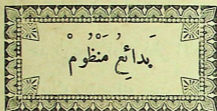 بَدائِعُ مَنْظُومْ